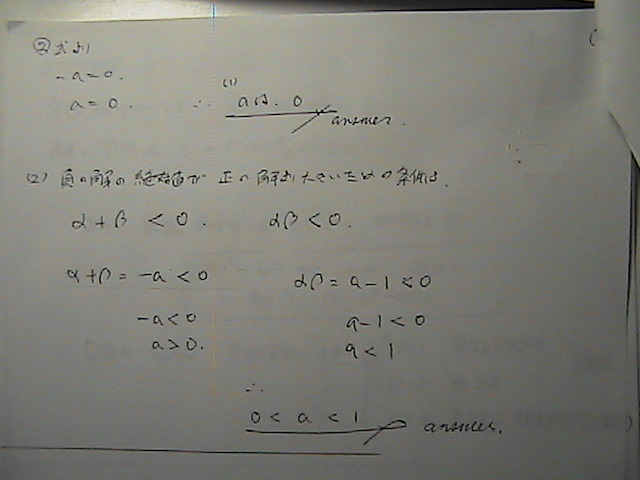 ②式より
-a=0.
a=0. ∴ (1) aは. 0 answer.
(2) 負の解の絶対値が 正の解より大きいための条件は.
α+β <0. αβ<0.
α+β=-a<0 αβ=a-1<0
-a<0 a-1<0
a>0. a<1
∴
0<a<1 answer.